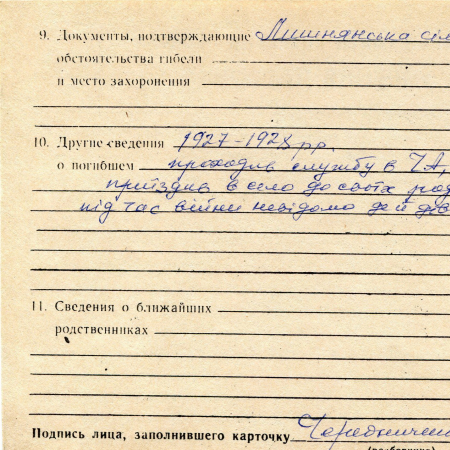 9. Документы, подтверждающие Лишнянська сіл
обстоятельства гибели
и место захоронения
10. Другие сведения 1927-1928 рр.
о погибшем проходив службу в ЧА,
приїздив в село до своїх род
під час війни невідомо де й
11. Сведения о ближайших
родственниках
Подпись лица, заполнившего карточку Чередничен